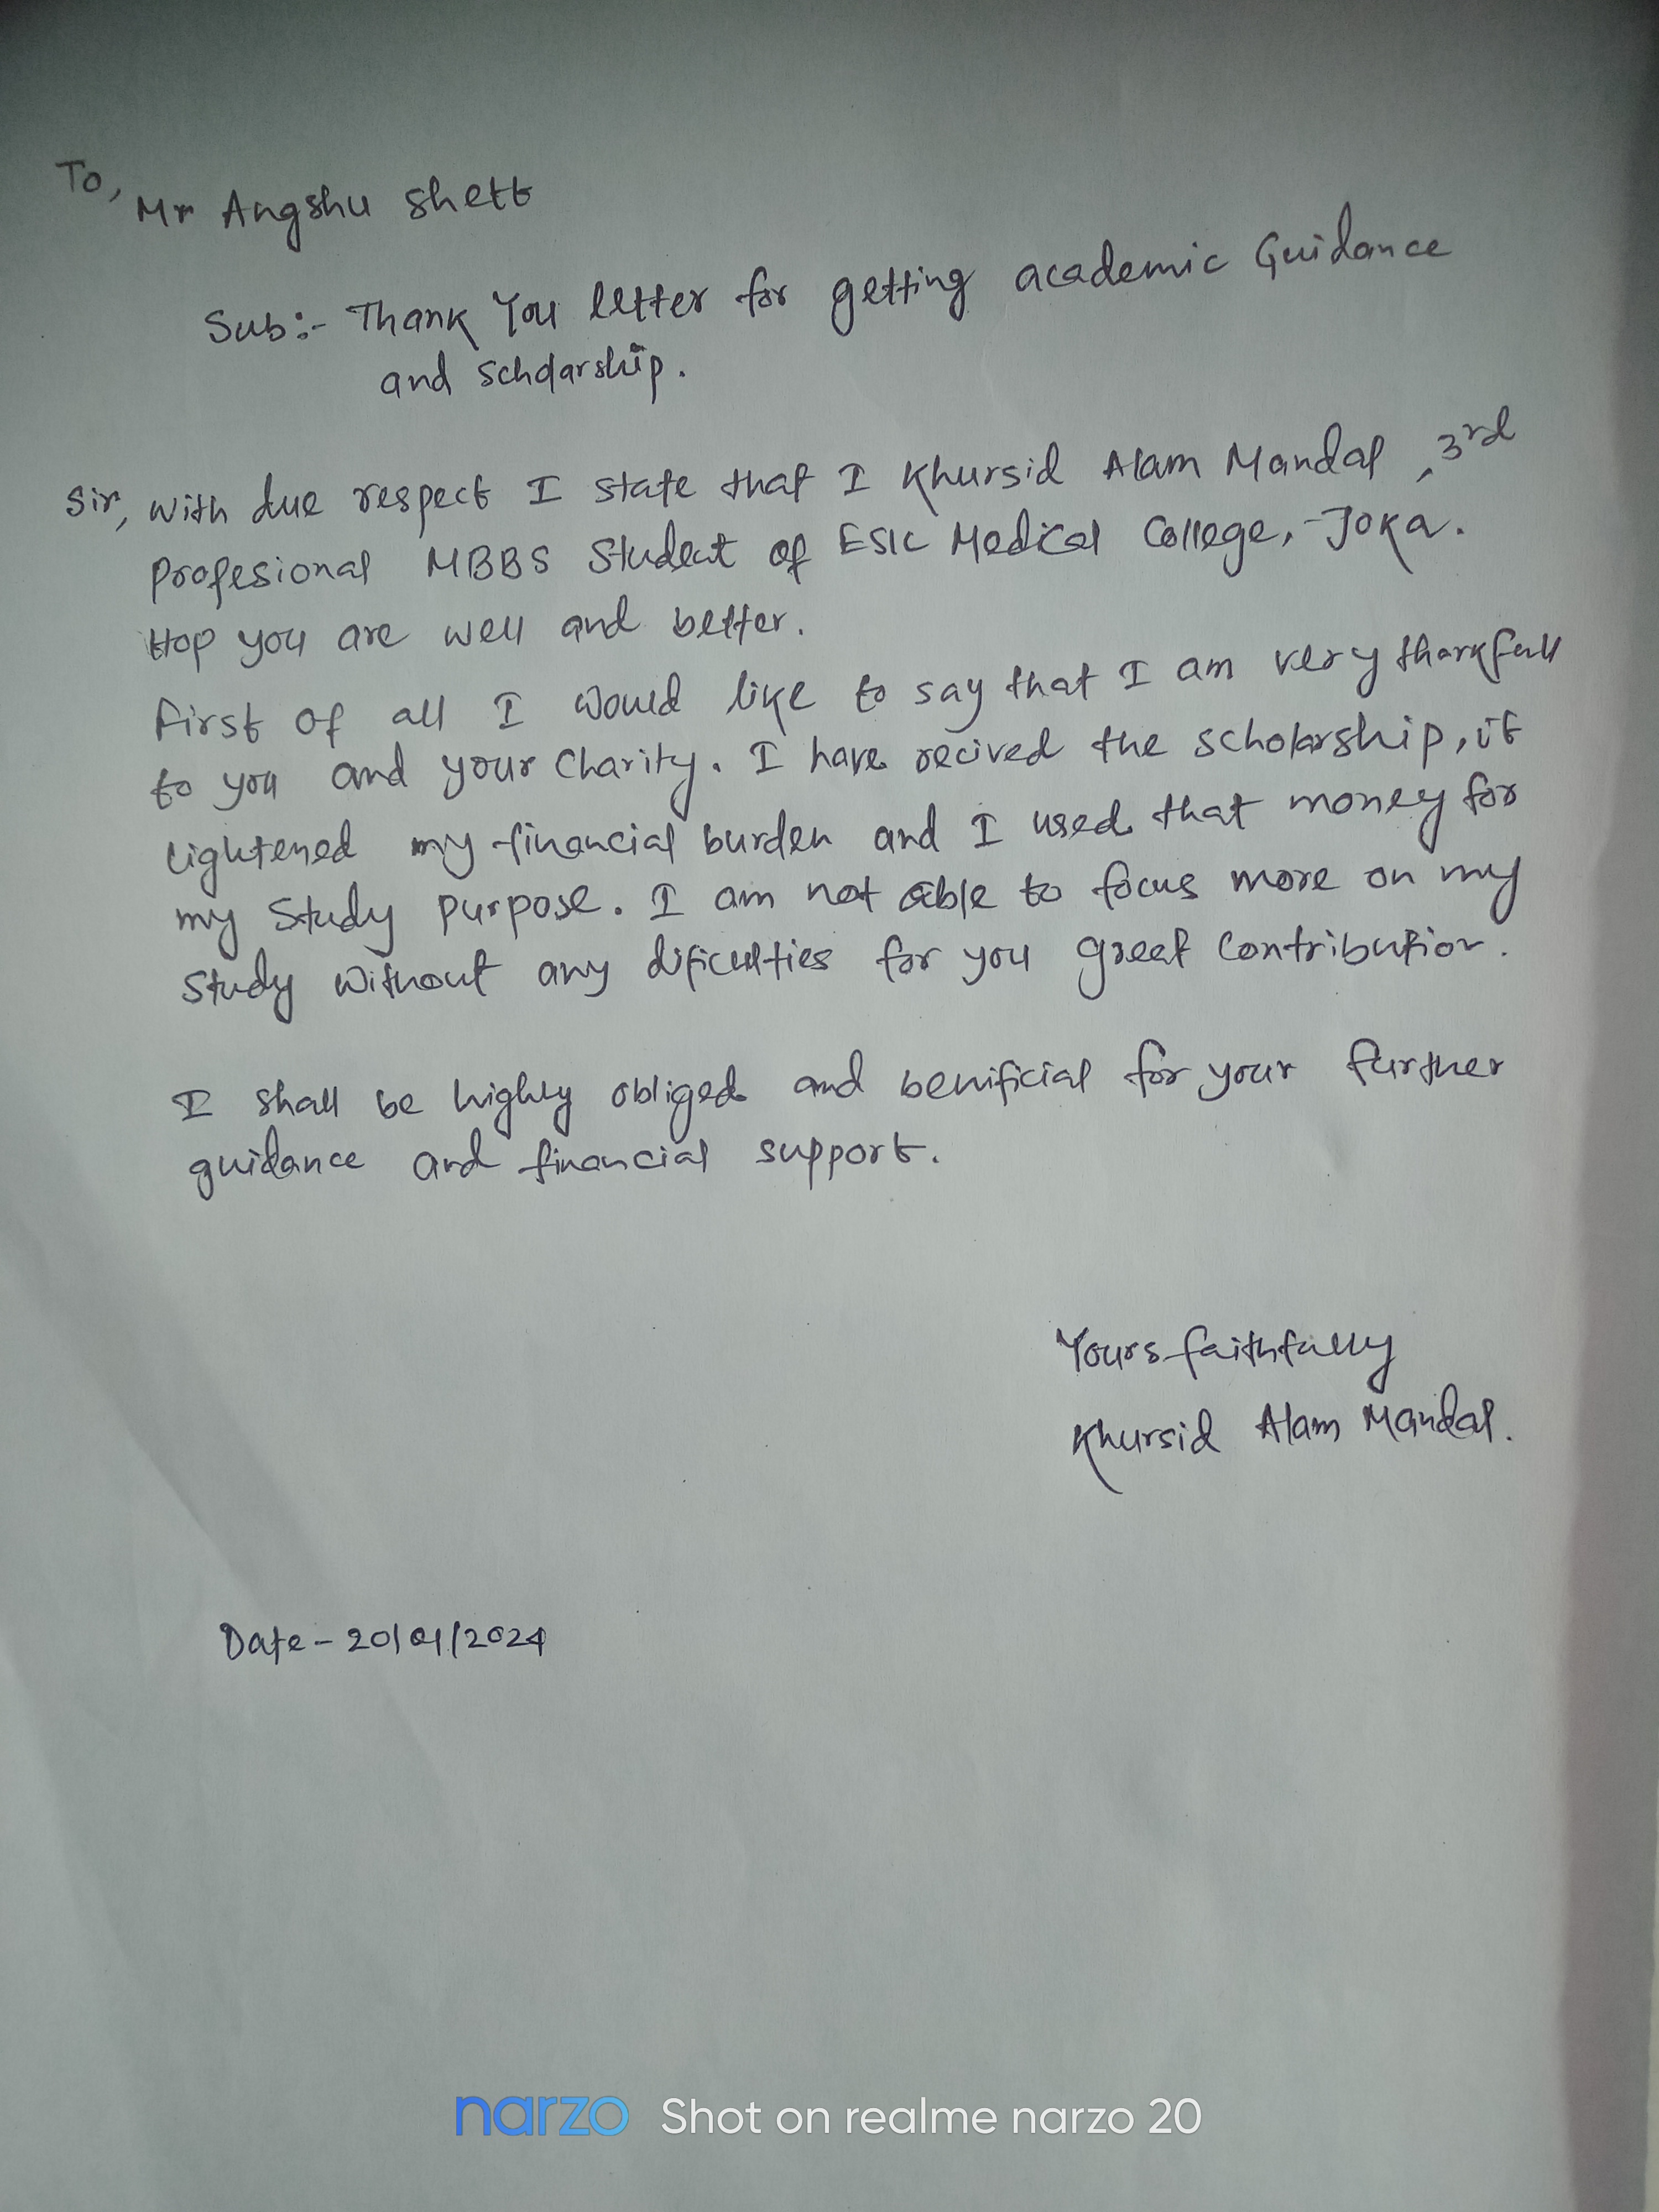 To,
Mr Angshu Shett
Sub:- Thank You letter for getting academic Guidance
and scholarship.
Sir, with due respect I state that I Khursid Alam Mandal, 3rd
profesional MBBS Student of ESIC Medical College, Joka.
Hop you are well and better.
first of all I would like to say that I am very thankfull
to you and your Charity. I have recived the scholarship, it
lightened my financial burden and I used that money for
my study purpose. I am not able to focus more on my
study without any dificulties for you great Contribution.
I shall be highly obliged and benificial for your further
guidance and financial support.
Yours faithfully
Khursid Alam Mandal.
Date - 20/01/2024
narzo Shot on realme narzo 20